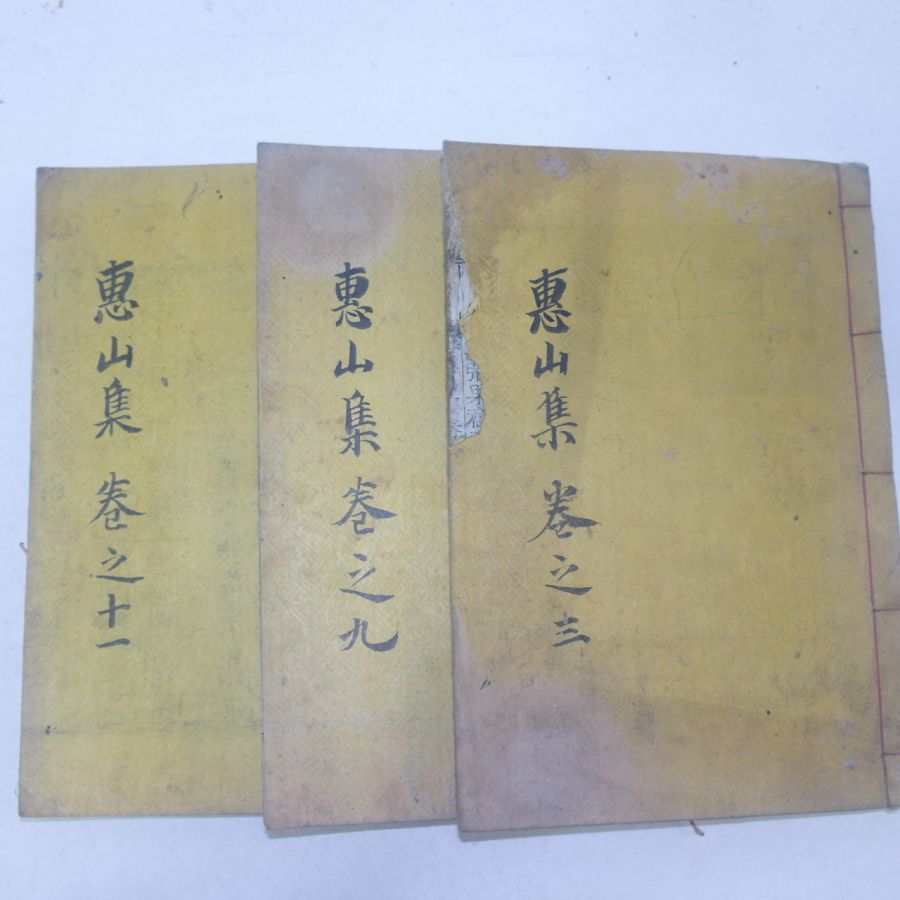 惠山集 卷之三
惠山集 卷之九
惠山集 卷之十一